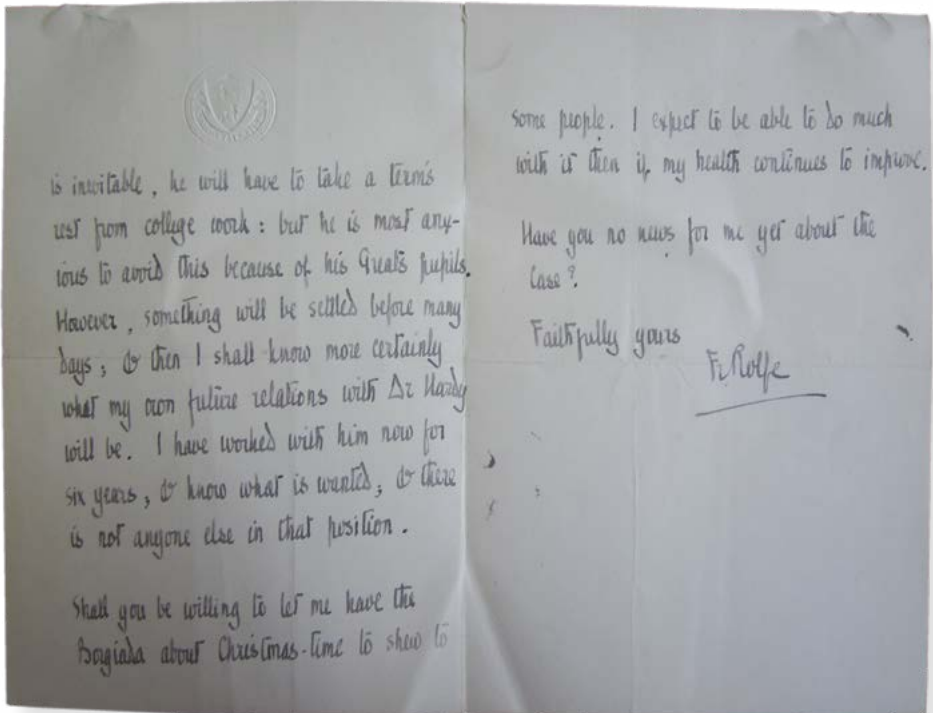 is inevitable, he will have to take a term's
rest from college work: but he is most anx-
ious to avoid this because of his Greats pupils.
However, something will be settled before many
days; & then I shall know more certainly
what my own future relations with Dr Hardy
will be. I have worked with him now for
six years, & know what is wanted; & there
is not anyone else in that position.
Shall you be willing to let me have the
Borgiada about Christmas-time to shew to
some people. I expect to be able to do much
with it then if my health continues to improve.
Have you no news for me yet about the
Case?
Faithfully yours
Fr. Rolfe